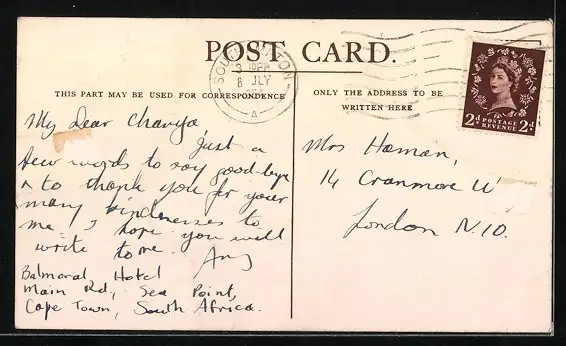 POST CARD.
3 15PM
8 JLY
A
THIS PART MAY BE USED FOR CORRESPONDENCE
ONLY THE ADDRESS TO BE
WRITTEN HERE
2d POSTAGE 2d
REVENUE
My Dear
Just a
few words to say good-bye
& to thank you for your
many kindnesses to
me, I hope you will
write to me. Amy
Balmoral Hotel
Main Rd, Sea Point,
Cape Town, South Africa.
Mrs Haman,
14 Cranmore W
London N.10.